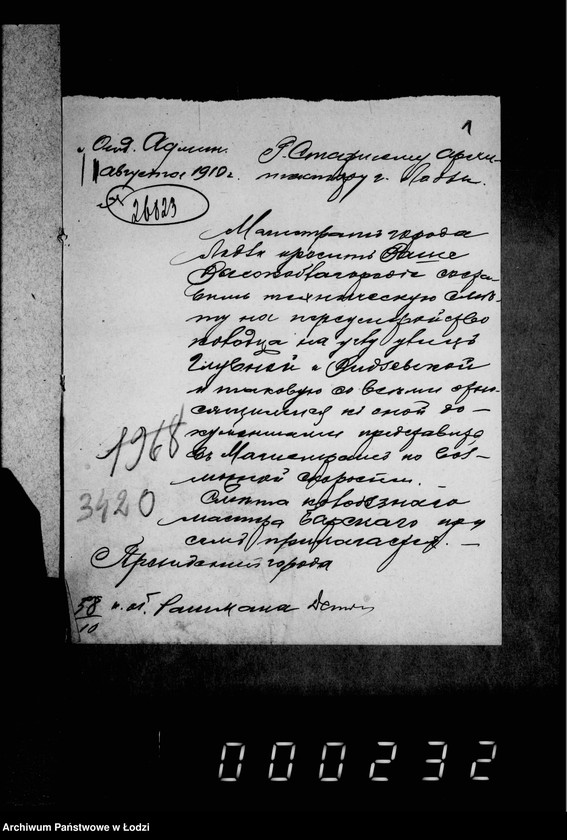 1
Отд. Админ.
11 августа 1910 г.
26823
Г. Старшему архи-
тектору г. Лодзи.
Магистратъ города
Лодзи проситъ Ваше
Высокоблагородіе соста-
вить техническую смѣ-
ту на переустройство
колодца на углу улицъ
Главной и Видзевской
и таковую со всѣми отно-
сящимися къ оной до-
кументами представить
въ Магистратъ по воз-
можной скорости.
Смѣта колодезнаго
мастра при
семъ прилагается.
1968
3420
Президентъ города
58
10
000232
Archiwum Państwowe w Łodzi